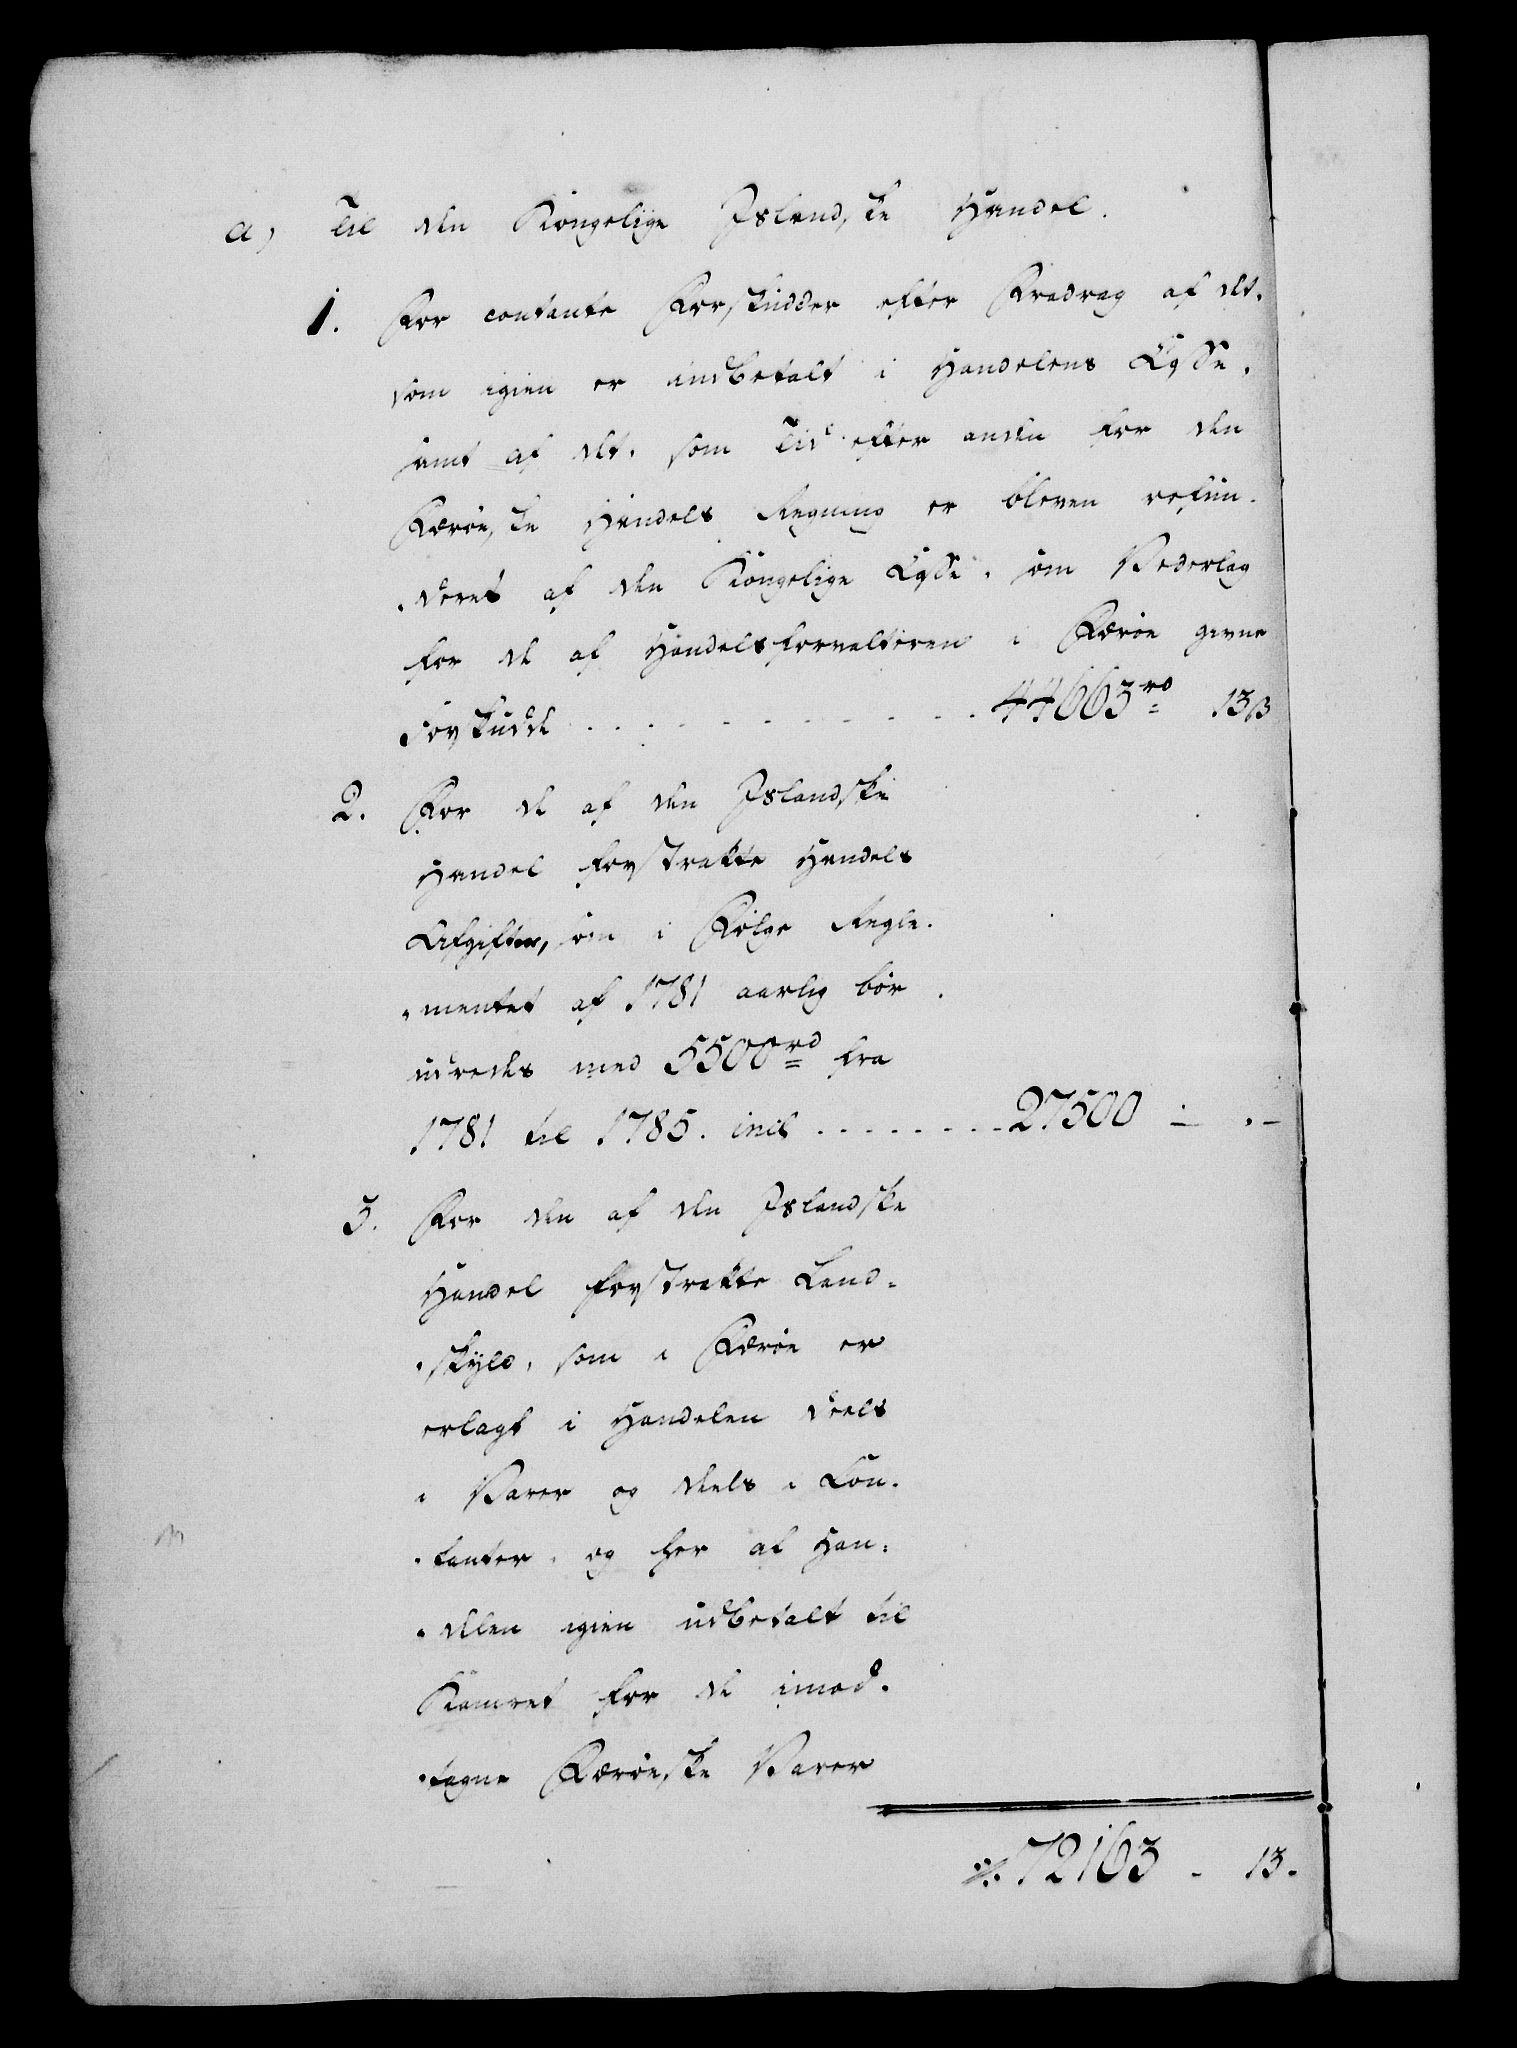 a, Til den Kongelige Islandske Handel.
1. For contante Forskudder efter Fradrag af det,
som igien er indbetalt i Handelens Casse,
samt af det, som Tid efter anden for den
Færøeske Handels Regning er bleven refun-
deret af den Kongelige Casse, som Vederlag
for de af Handelsforvalteren i Færøe givne
Forskudde . . . . . . . . . . . 44663 rd 13 ß
2. For de af den Islandske
Handel forstrakte Handels
Afgifter, som i Følge Regle-
mentet af 1781 aarlig bør
udredes med 5500 rd fra
1781 til 1785. incl . . . . . . . . 27500 - . -
3. For den af den Islandske
Handel forstrakte Land-
skyld, som i Færøe er
erlagt i Handelen deels
i Varer og deels i Con-
tanter, og her af Han-
delen igien udbetalt til
Kamret for de imod-
tagne Færøeske Varer
72163 - 13 -